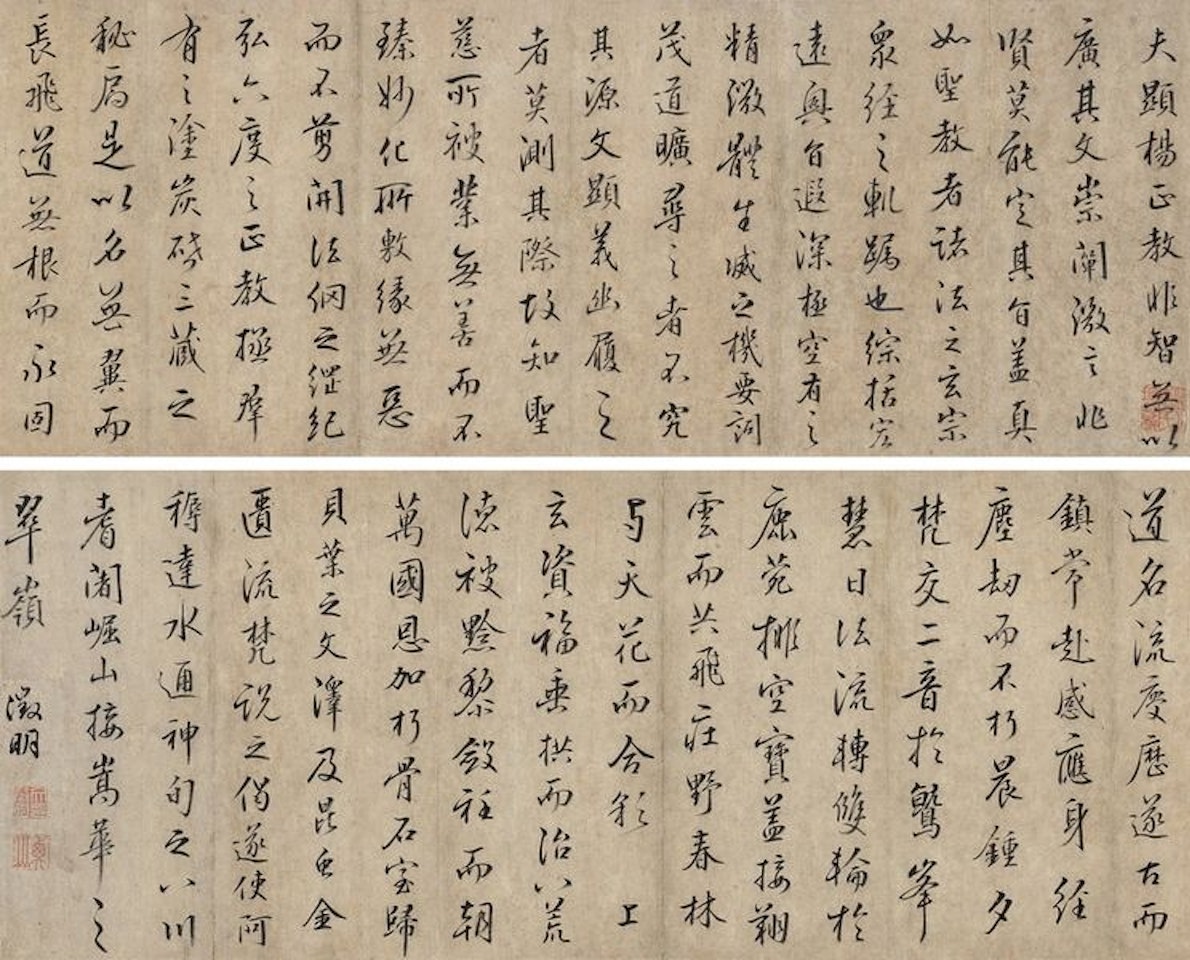 夫顯楊正教非智無以
廣其文崇闡微言非
賢莫能定其旨蓋真
如聖教者諸法之玄宗
衆經之軌躅也綜括宏
遠奧旨遐深極空有之
精微體生滅之機要詞
茂道曠尋之者不究
其源文顯義幽履之
者莫測其際故知聖
慈所被業無善而不
臻妙化所敷緣無惡
而不剪開法網之綱紀
弘六度之正教拯羣
有之塗炭啓三藏之
秘扃是以名無翼而
長飛道無根而永固
道名流慶歷遂古而
鎮常赴感應身經
塵劫而不朽晨鍾夕
梵交二音於鷲峯
慧日法流轉雙輪於
鹿菀排空寶蓋接翔
雲而共飛莊野春林
与天花而合彩 上
玄資福垂拱而治八荒
德被黔黎斂衽而朝
萬國恩加朽骨石室歸
貝葉之文澤及昆虫金
匱流梵說之偈遂使阿
耨達水通神甸之八川
耆闍崛山接嵩華之
翠嶺 徵明